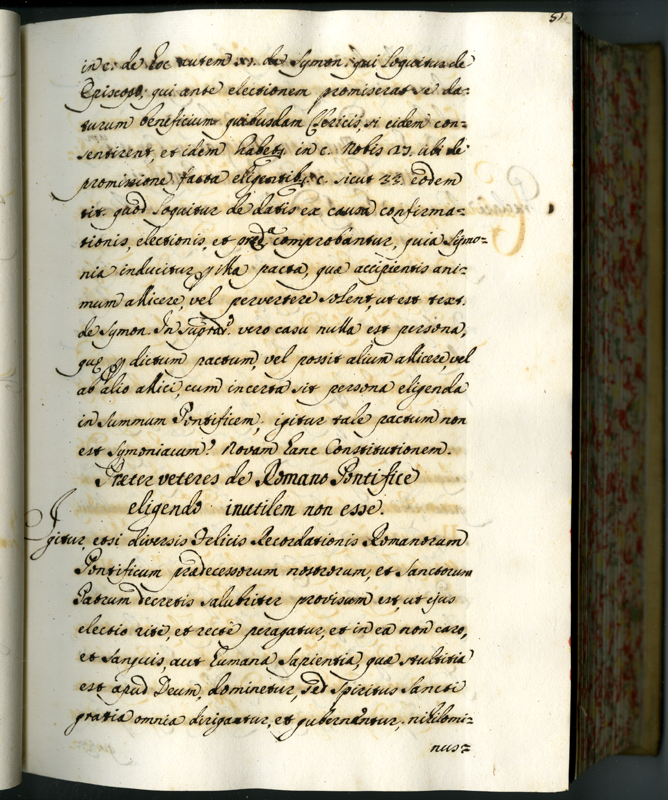 51
in c. de hoc autem xi. de Symon: qui loquitur de
Episcopo, qui ante electionem promiserat se da=
turum beneficium quibusdam Clericis, si eidem con=
sentirent, et idem habetur in c. Nobis 27. ubi de
promissione facta eligentibus, c. sicut 33. eodem
tit. quod loquitur de datis ex causa confirma=
tionis, electionis, et comprobantur, quia Symo=
nia inducitur illa pacta, quæ accipientis ani=
mum allicere, vel pervertere solent, ut est text.
de Symon. In vero casu nulla est persona,
quæ dictum pactum, vel possit alium allicere, vel
ab alio allici, cum incerta sit persona eligenda
in summum Pontificem, igitur tale pactum non
est Symoniacum? Novam hanc Constitutionem.
Præter veteres de Romano Pontifice
eligendo inutilem non esse.
Igitur, etsi diversis Felicis Recordationis Romanorum
Pontificum prædecessorum nostrorum, et Sanctorum
Patrum decretis salubriter provisum est, ut ejus
electio rite, et recte peragatur, et in ea non caro,
et sanguis, aut humana sapientia, quæ stultitia
est apud Deum, dominetur, sed Spiritus Sancti
gratia omnia dirigantur, et gubernentur, nihilomi=
nus=